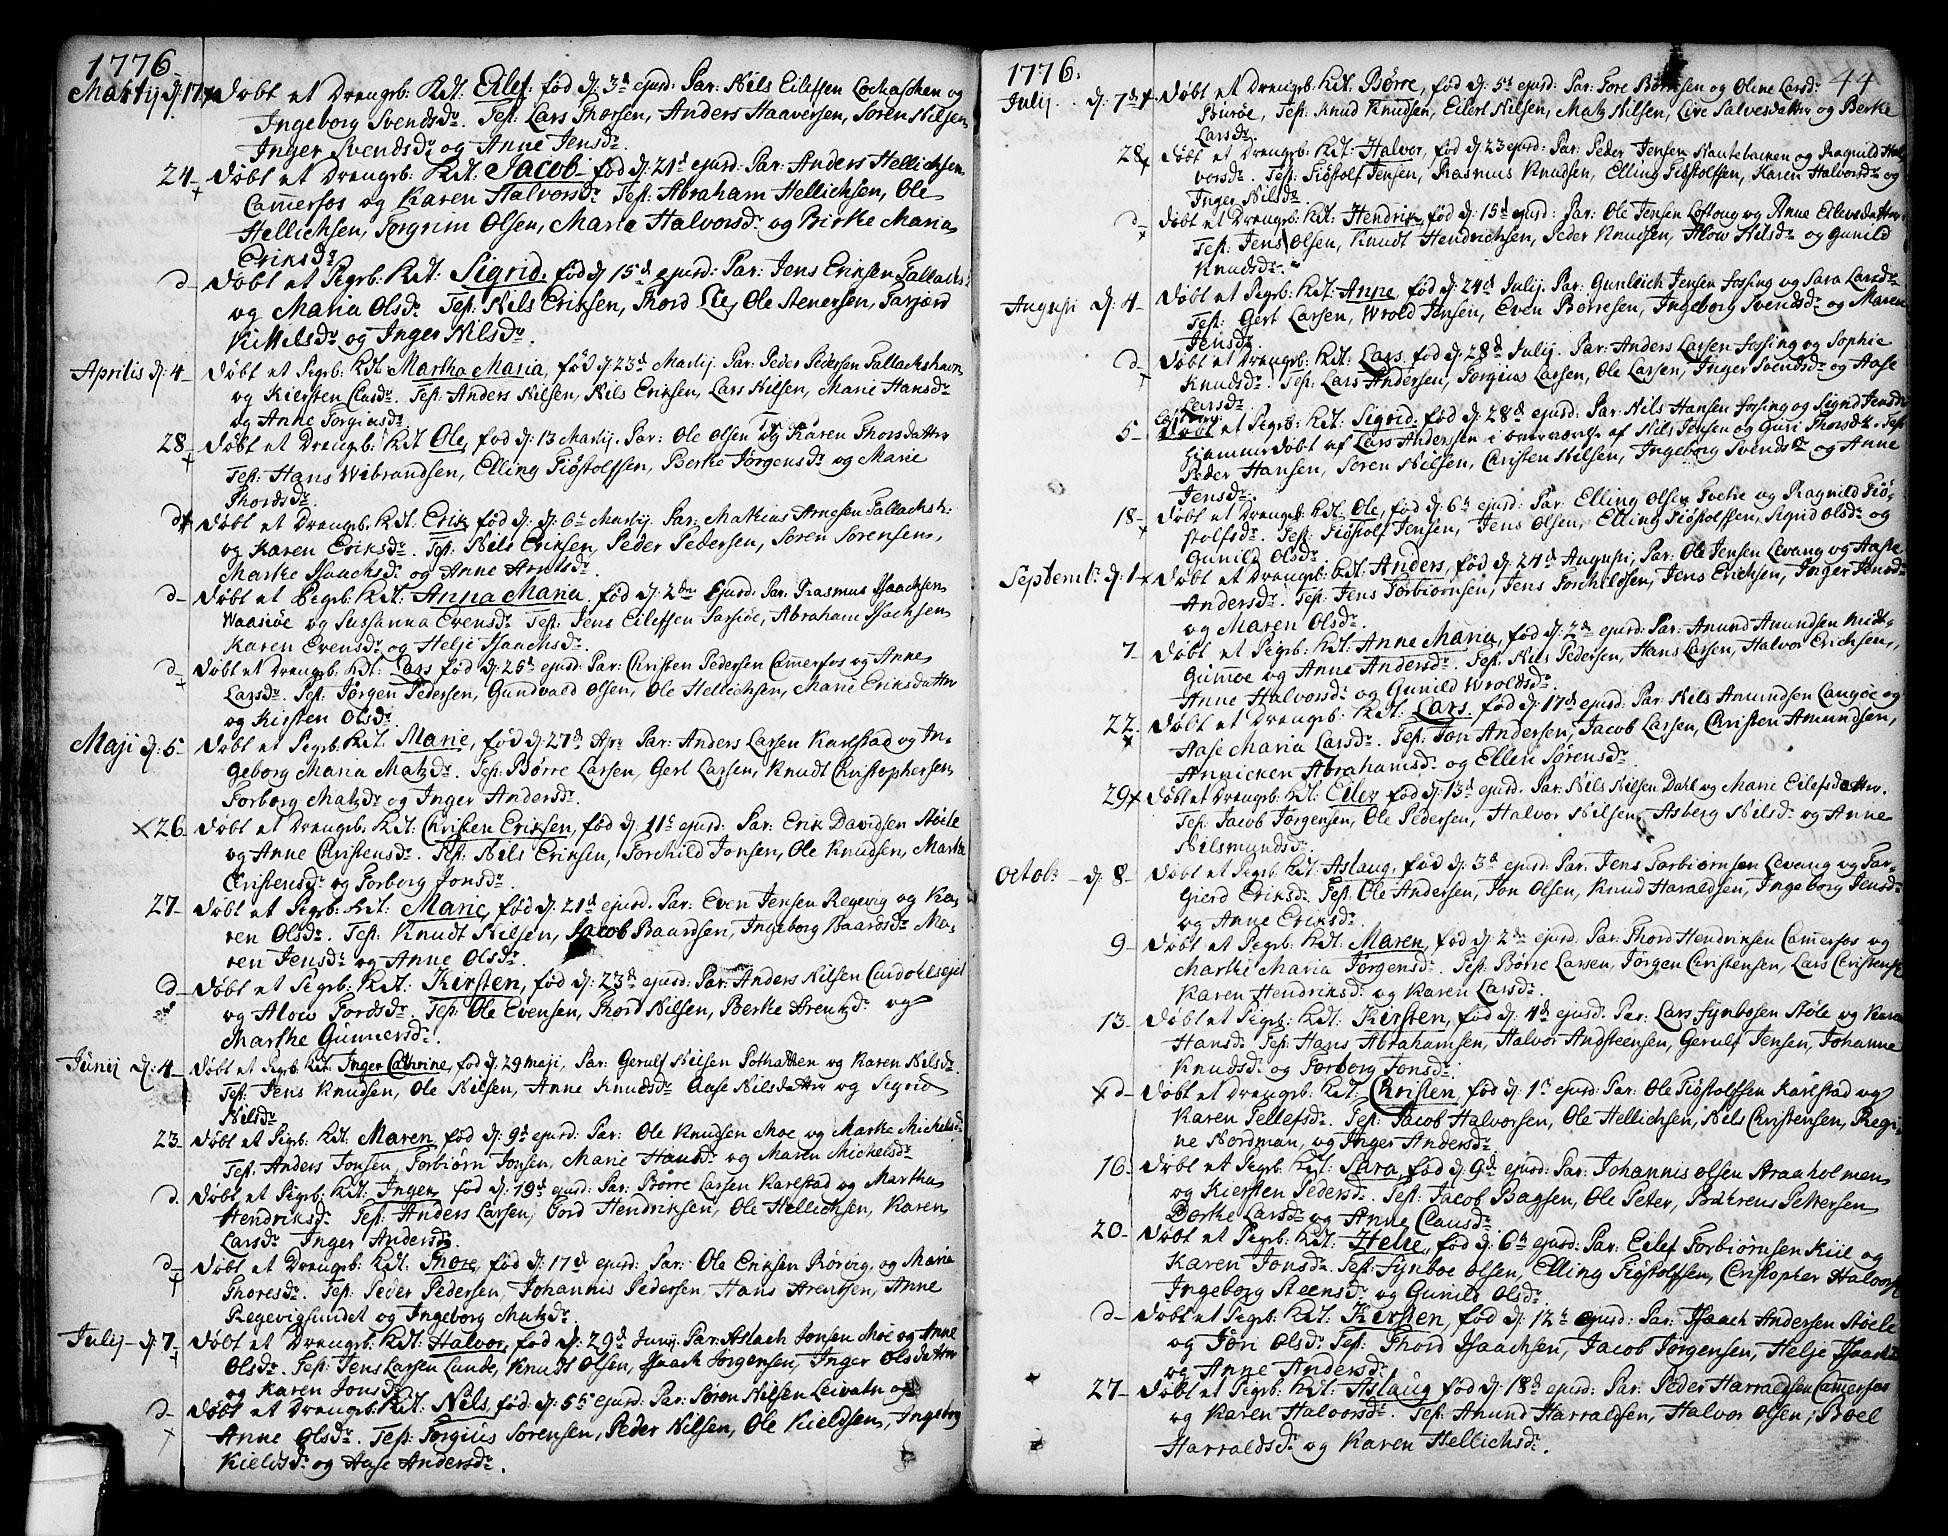 1776
Martij d: 17 Døbt et Drengb: Kdt: Eilef, fød d: 3d ejusd: Par: Nils Eilefsen Lochaschen og
Ingeborg Svendsdr. Test: Lars Thorsen, Anders Haaversen, Søren Nilsen,
Inger Svendsdr og Anne Jensdr.
24 Døbt et Drengb: Kdt: Jacob fød d: 21d ejusd: Par: Anders Hellichsen
Camerfos og Karen Halvorsdr Test: Abraham Hellichsen, Ole
Hellichsen, Torgrim Olsen, Maria Halvorsdr og Birte Maria
Eriksdr
d Døbt et Pigeb: Kdt: Sigrid, fød d: 15d ejusd: Par: Jens Eriksen Tallachs:
og Maria Olsdr Test: Nils Eriksen, Thord Lie, Ole Stenersen, Targierd
Kittelsdr og Inger Nilsdr
Aprilis d: 4 Døbt et Pigeb: Kdt: Martha Maria, fød d: 23d Martij. Par: Peder Pedersen Tallachshavn
og Kiersten Clausdr. Test: Anders Nilsen, Nils Eriksen, Lars Nilsen, Marie Hansdr
og Anne Torginsdr
28 Døbt et Drengb: Kdt Ole, fød d: 13 Martij. Par: Ole Olsen og Karen Thorsdatter
Test: Hans Wibrandsen, Elling Siøstolfsen, Berte Jørgensdr og Marie
Thordsdr
d Døbt et Drengb: Kdt: Erik fød d: 6te Martij. Par: Mathias Arnesen Tallachsh:
og Karen Eriksdr. Test: Nils Eriksen, Peder Pedersen, Soren Sorensen,
Marte Isaachsdr og Anne Arntsdr.
d Døbt et Pigeb: Kdt: Anna Maria, fød d: 2den Ejusd: Par: Rasmus Isaachsen
Waasøe og Sussanna Evensdr Test: Jens Eilefsen Sarsiøe, Abraham Isachsen
Karen Evensdr og Helje Isaachsdr.
d Døbt et Drengb: Kdt: Lars fød d: 25d ejusd: Par: Christen Pedersen Camerfos og Anne
Larsdr. Test: Jørgen Pedersen, Gundvald Olsen, Ole Hellichsen, Marie Eriksdatter
og Kirsten Olsdr.
Maji d: 5 Døbt et Pigeb: Kdt: Marie, fød d: 27d Apr: Par: Anders Larsen Karlstad og In-
geborg Maria Matzdr. Test: Børre Larsen, Gert Larsen, Knudt Christophersen
Torborg Matzdr og Inger Andersdr.
26 Døbt et Drengb: Kdt: Christen Eriksen, fød d: 11te ejusd: Par: Erik Davidsen Støle
og Anne Christensdr. Test: Nils Eriksen, Torchild Jonsen, Ole Knudsen, Marte
Cristensdr og Torborg Jonsdr.
27 Døbt et Pigeb: Kdt: Marie, fød d: 21d ejusd: Par: Even Jensen Regevig og Ka-
ren Olsdr. Test: Knudt Nilsen, Jacob Baardsen, Ingeborg Baardsdr Ma-
ren Jensdr og Anne Olsdr.
d Døbt et Pigeb: Kdt: Kirsten, fød d: 23d ejusd: Par: Anders Nilsen
og Alow Tordsdr. Test: Ole Evensen, Thord Nilsen, Berte Arentzdr og
Marthe Gunnersdr.
Junij d: 4 Døbt et Pigeb: Kdt: Inger Cathrine, fød d: 29 maji, Par: Gerulf Nilsen og Karen Nilsdr.
Test: Jens Knudsen, Ole Nilsen, Anne Knudsdr Aase Nilsdatter og Sigrid
Nilsdr
23 Døbt et Pigeb: Kdt: Maren, fød d: 9d ejusd: Par: Ole Knudsen Moe og Marte Michelsdr
Test: Anders Jonsen, Torbiørn Jonsen, Marie Hansdr og Maren Michelsdr
d Døbt et Pigeb: Kdt: Inger, fød d: 19d ejusd: Par: Børre Larsen Karlstad og Martha
Hendriksdr Test: Anders Larsen, Tord Hendriksen, Ole Hellichsen, Karen
Larsdr Inger Andersdr.
d Døbt et Drengb: Kdt: Thore, fød d: 17d ejusd: Par: Ole Eriksen Rørvig, og Maria
Thoresdr. Test: Peder Pedersen, Johannis Pedersen, Hans Arentsen, Anne
Regevigsundet og Ingeborg Matzdr.
Julij d: 7 Døbt et Drengb: Kdt: Halvor, fød d: 29d Junij: Par: Aslach Jonsen Moe og Anne
Olsdr. Test: Jens Larsen Lunde, Knudt Olsen, Isaach Jørgensen, Inger Olsdatter
og Karen Jonsdr
d Døbt et Drengb: Kdt: Nils, fød d: 5te ejusd: Par: Søren Nilsen Leivatn og
Anne Olsdr. Test: Torgius Sorensen, Peder Nilsen, Ole Kieldsen, Ingeborg
Kieldsdr og Aase Andersdr.
1776. 44
Julij d: 7d Døbt et Drengb: Kdt: Børre, fød d: 5d ejusd: Par: Tore Børresen og Oline Larsdr
Burøe, Test: Knud Knudsen, Eilert Nilsen, Matz Nilsen, Live Salvesdatter og Berte
Larsdr.
28 Døbt et Drengb: Kdt: Halvor, fød d: 23 ejusd: Par: Peder Jensen og Ragnild Hal-
vorsdr. Test: Siøstolf Jensen, Rasmus Knudsen, Elling Siøstolfsen, Karen Halvorsdr og
Inger Nilsdr.
d Døbt et Drengb: Kdt: Hendrik, fød d: 15d ejusd: Par: Ole Jensen Loftoug og Anne Eilevsdatter
Test: Jens Olsen, Knudt Hendrichsen, Peder Knudsen, Alow Nilsdr og Gunild
Knudsdr.
Augusti d: 4 Døbt et Pigeb: Kdt: Anne, fød d: 24d Julij. Par: Gunleich Jensen Fossing og Sara Larsdr
Test: Gert Larsen, Wrold Jensen, Even Børresen, Ingeborg Svendsdr og Maren
Jensdr.
d Døbt et Drengb: Kdt: Lars, fød d: 28d Julij. Par: Anders Larsen Fossing og Sophie
Knudsdr. Test: Lars Andersen, Torgius Larsen, Ole Larsen, Inger Svendsdr og Aase
Larsdr
5 Døbt et Pigeb: Kdt: Sigrid, fød d: 28d ejusd: Par: Nils Hansen Fossing og Sigrid Jensdr
hiemmedøbt af Lars Andersen i overværelse af Nils Jensen og Guri Thorsdr. Test:
Peder Hansen, Soren Nilsen, Christen Nilsen, Ingeborg Svendsdr og Anne
Jensdr.
18 Døbt et Drengb: Kdt: Ole, fød d: 6te ejusd: Par: Elling Olsen Tveite og Ragnild Siø-
stolfsdr. Test: Siøstolf Jensen, Jens Olsen, Elling Siøstolfsen, Sigrid Olsdr og
Gunild Olsdr.
Septembr d: 1 Døbt et Drengb: Kdt: Anders, fød d: 24d Augusti, Par: Ole Jensen Levang og Aaste
Andersdr. Test: Jens Torbiørnsen, Jens Torchildsen, Jens Erichsen, Inger Jensdr
og Maren Olsdr.
7 Døbt et Pigeb: Kdt: Anne Maria, fød d: 2d ejusd: Par: Anund Amundsen
Gumøe og Anne Andersdr. Test: Nils Pedersen, Hans Larsen, Halvor Erichsen,
Anne Halvorsdr og Gunild Wroldsdr.
22 Døbt et Drengb: Kdt: Lars, fød d: 17d ejusd: Par: Nils Amundsen Langøe og
Aase Maria Larsdr. Test: Jon Andersen, Jacob Larsen, Christen Amundsen,
Annicken Abrahamsdr og Ellen Sørensdr.
29 Døbt et Drengb: Kdt: Eilev fød d: 13d ejusd. Par: Nils Nilsen Dahl og Marie Eilefsdatter.
Test: Jacob Jørgensen, Ole Pedersen, Halvor Nilsen, Asberg Nilsdr og Anne
Nilsmundsdr.
Octobr d: 8 Døbt et Pigeb: Kdt: Aslaug, fød d: 3d ejusd: Par: Jens Torbiørnsen Levang og Tar-
gierd Eriksdr. Test: Ole Andersen, Jon Olsen, Knud Haraldsen, Ingeborg Jensdr
og Anne Eriksdr.
9 Døbt et Pigeb: Kdt: Maren, fød d: 2den ejusd: Par: Thord Hendriksen Camerfos og
Marthe Maria Jørgensdr. Test: Børre Larsen, Jørgen Christensen, Lars Christense
Karen Hendriksdr og Karen Larsdr.
13 Døbt et Pigeb: Kdt: Kirsten, fød d: 4d ejusd: Par: Lars Synbosen Støle og Karen
Hansdr Test: Hans Abrahamsen, Halvor Andsteensen, Gerulf Jensen, Johanne
Knudsdr og Torborg Jonsdr.
d Døbt et Drengeb: Kdt: Christen, fød d: 1te ejusd: Par: Ole Siøstolfsen Karlstad og
Karen Tellefsdr. Test: Jacob Halvorsen, Ole Hellichsen, Nils Christensen, Regi-
ne Nordman, og Inger Andersdr.
16 Døbt et Pigeb: Kdt: Sara, fød d: 9d ejusd: Par: Johannis Olsen Straaholmen
og Kiersten Pedersdr. Test: Jacob Bagsen, Ole Peter, Petersen
Berte Larsdr og Anne Clausdr
20 Døbt et Pigeb: Kdt: Helie, fød d: 6te ejusd: Par: Eilef Torbiørnsen Kiil og
Karen Jonsdr. Test: Synboe Olsen, Elling Siøstolfsen, Cristopher Halvorse
Ingeborg Steensdr og Gunild Olsdr.
d Døbt et Pigeb: Kdt: Kirsten, fød d: 12te ejusd: Par: Isaach Andersen Støle
og Jøri Olsdr. Test: Thord Isaachsen, Jacob Jørgensen, Helje Isaachsd
og Anne Andersdr.
27 Døbt et Pigeb: Kdt: Aslaug fød d: 18d ejusd: Par: Peder Harraldsen Camerfos
og Karen Halvorsdr. Test: Anund Harraldsen, Halvor Olsen, Boel
Harraldsdr og Karen Hellichsdr.